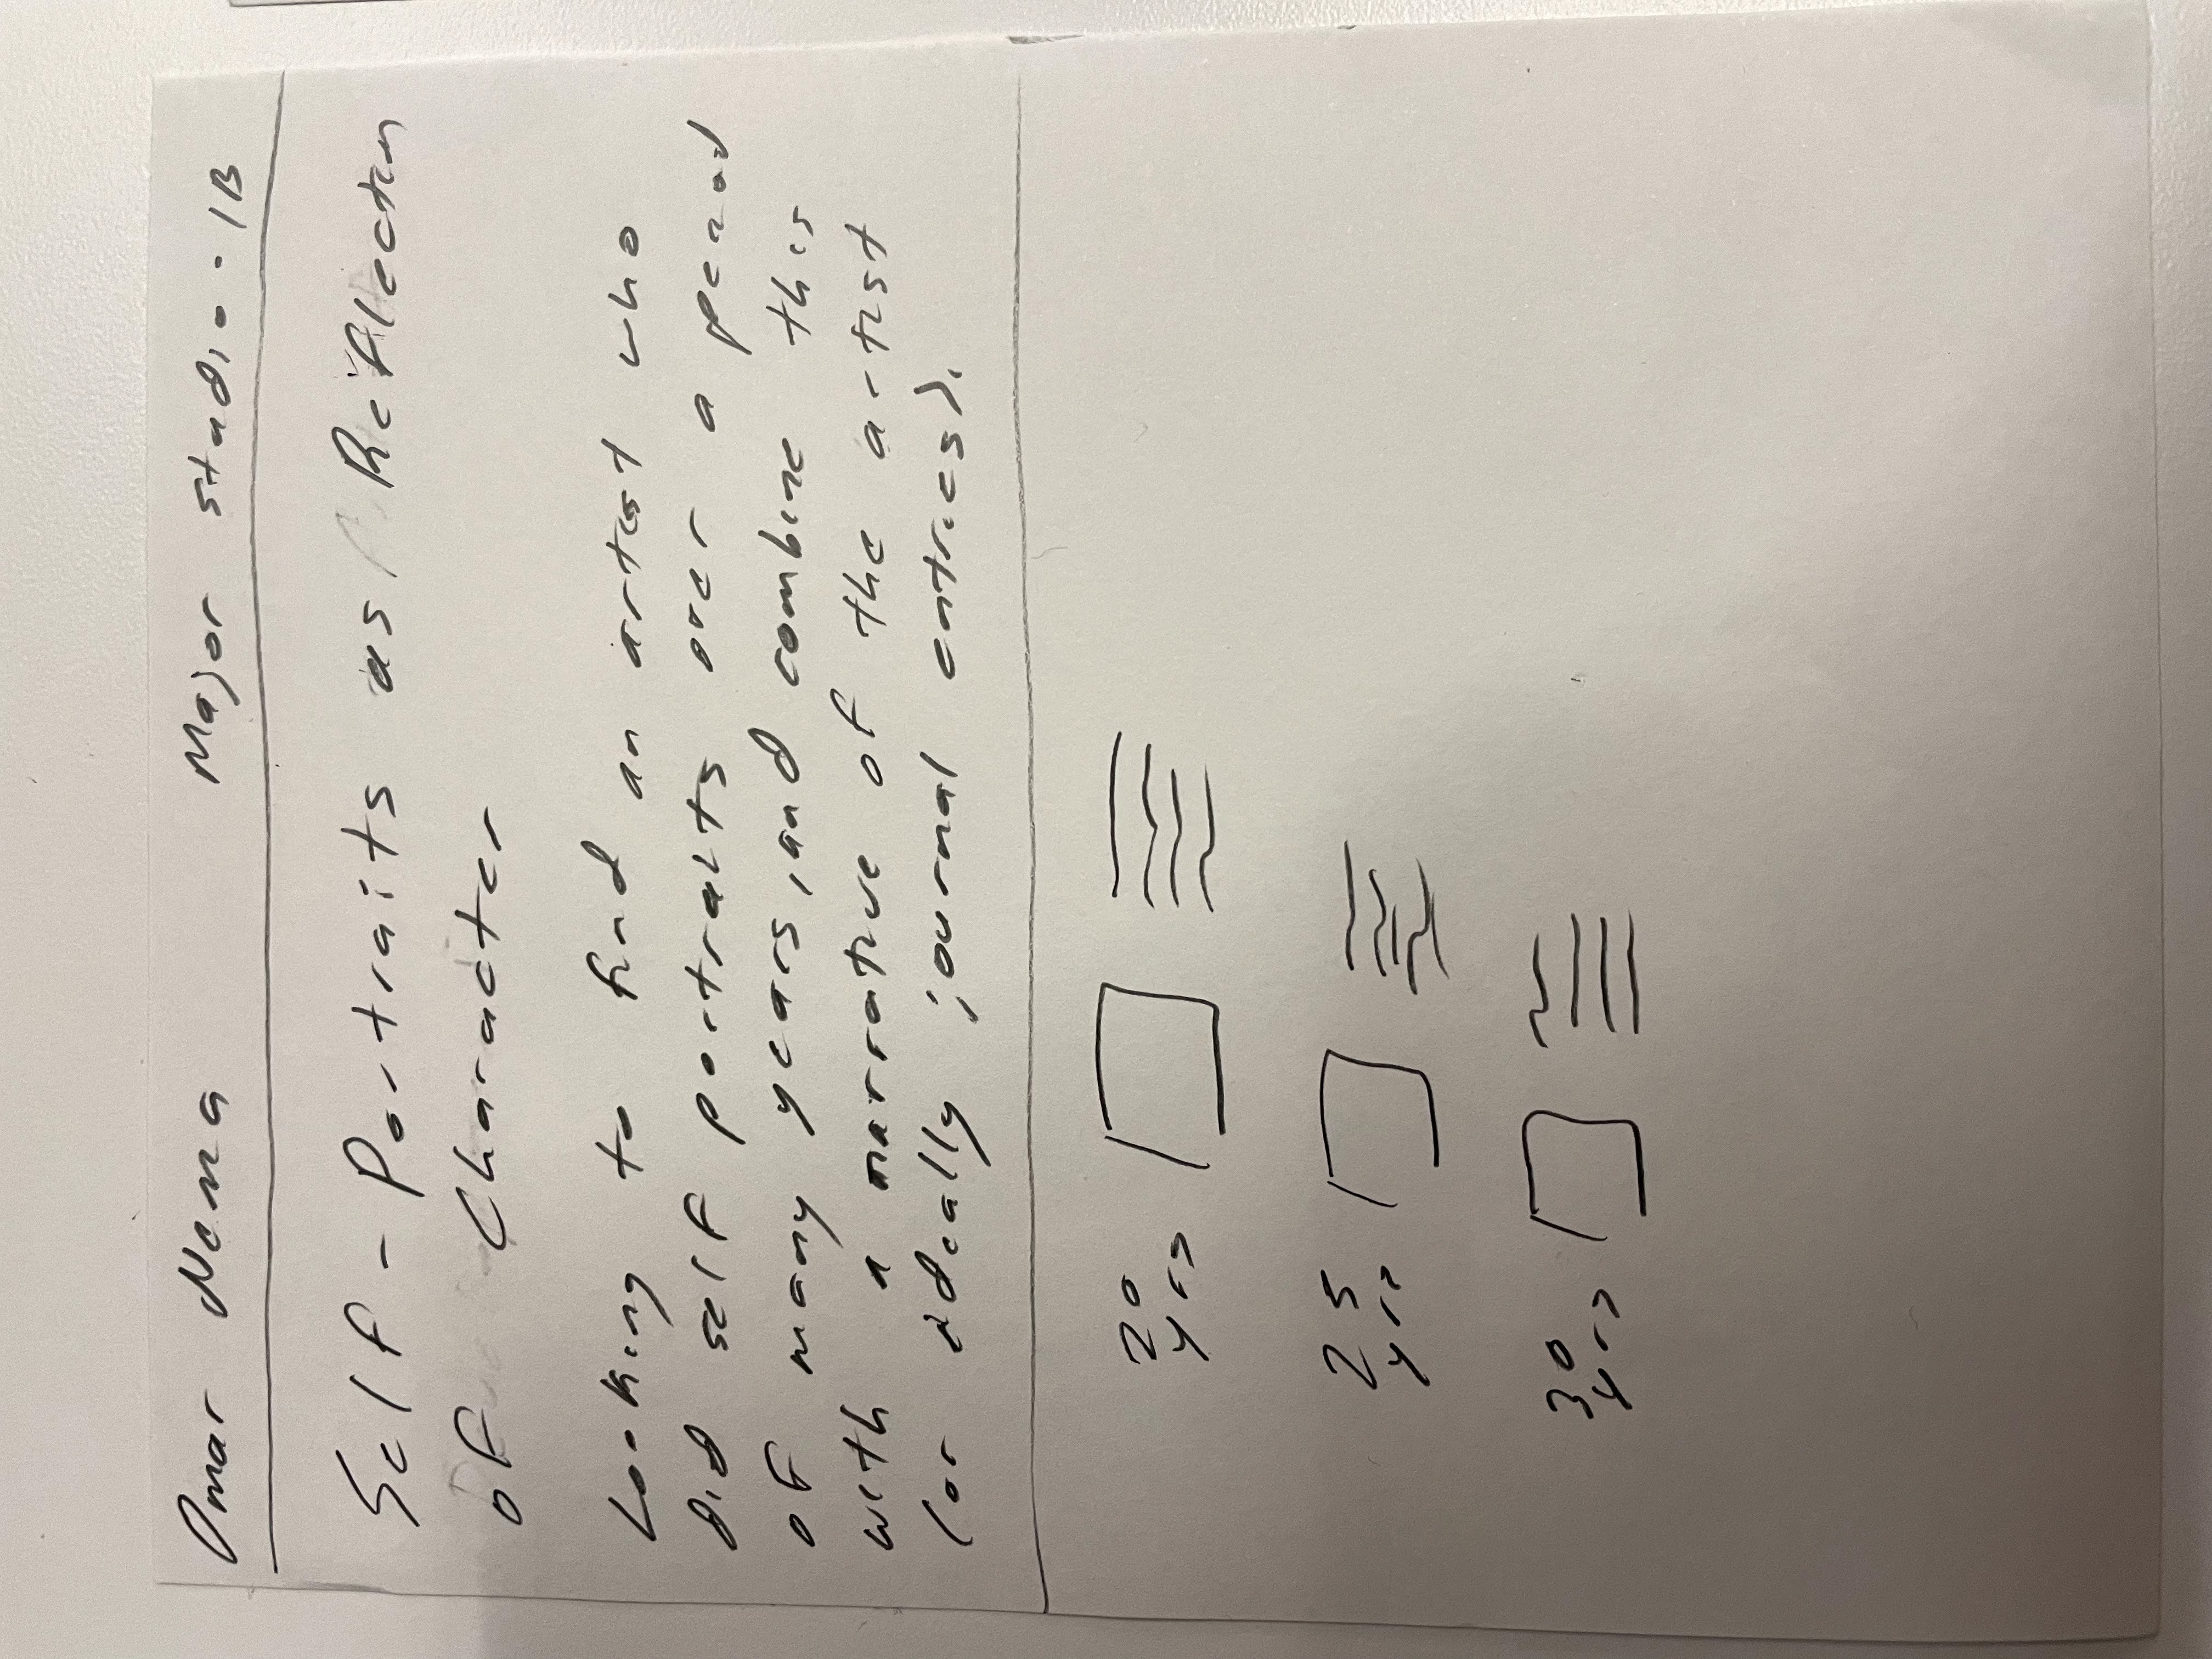 Omar Nema Major Studio - 1B
Self - Portraits as Reflection
of Character
Looking to find an artist who
did self portraits over a period
of many years, and combine this
with a narrative of the artist
(or ideally journal entries).
20
yrs
25
yrs
30
yrs